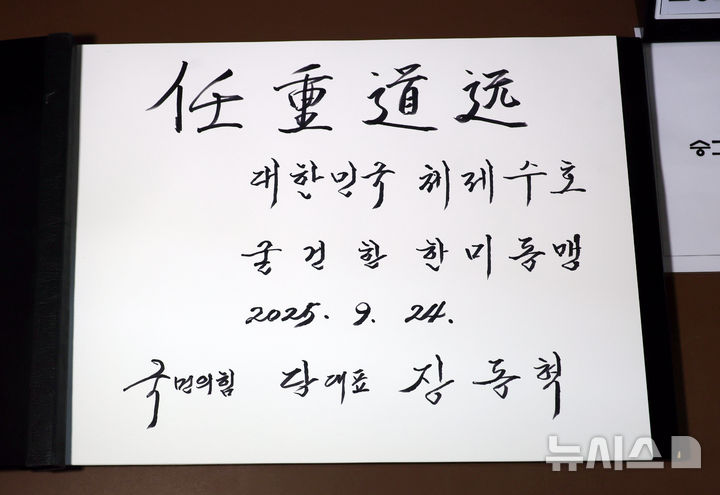 任重道远
대한민국 체제수호
굳건한 한미동맹
2025. 9. 24.
국민의힘 당대표 장동혁
뉴시스